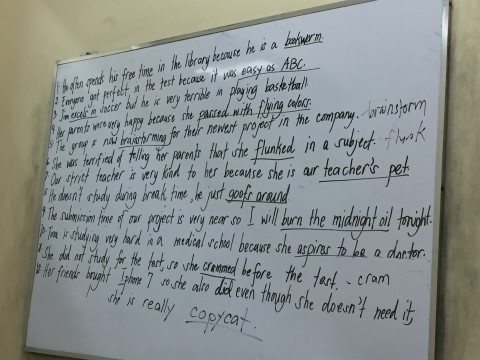 1. An often spends his free time in the library because he is a bookworm.
2. Everyone got perfect in the test because it was easy as ABC.
3. Jim excels in soccer but he is very terrible in playing basketball.
4. Her parents were very happy because she passed with flying colors.
5. The group is now brainstorming for their newest project in the company. brainstorm
6. She was terrified of telling her parents that she flunked in a subject. flunk
7. Our strict teacher is very kind to her because she is our teacher's pet.
8. He doesn't study during break time, he just goofs around
9. The submission time of our project is very near so I will burn the midnight oil tonight.
10. Tom is studying very hard in a medical school because she aspires to be a doctor.
11. She did not study for the test, so she crammed before the test. - cram
12. Her friends bought Iphone 7 so she also did even though she doesn't need it,
she is really copycat.